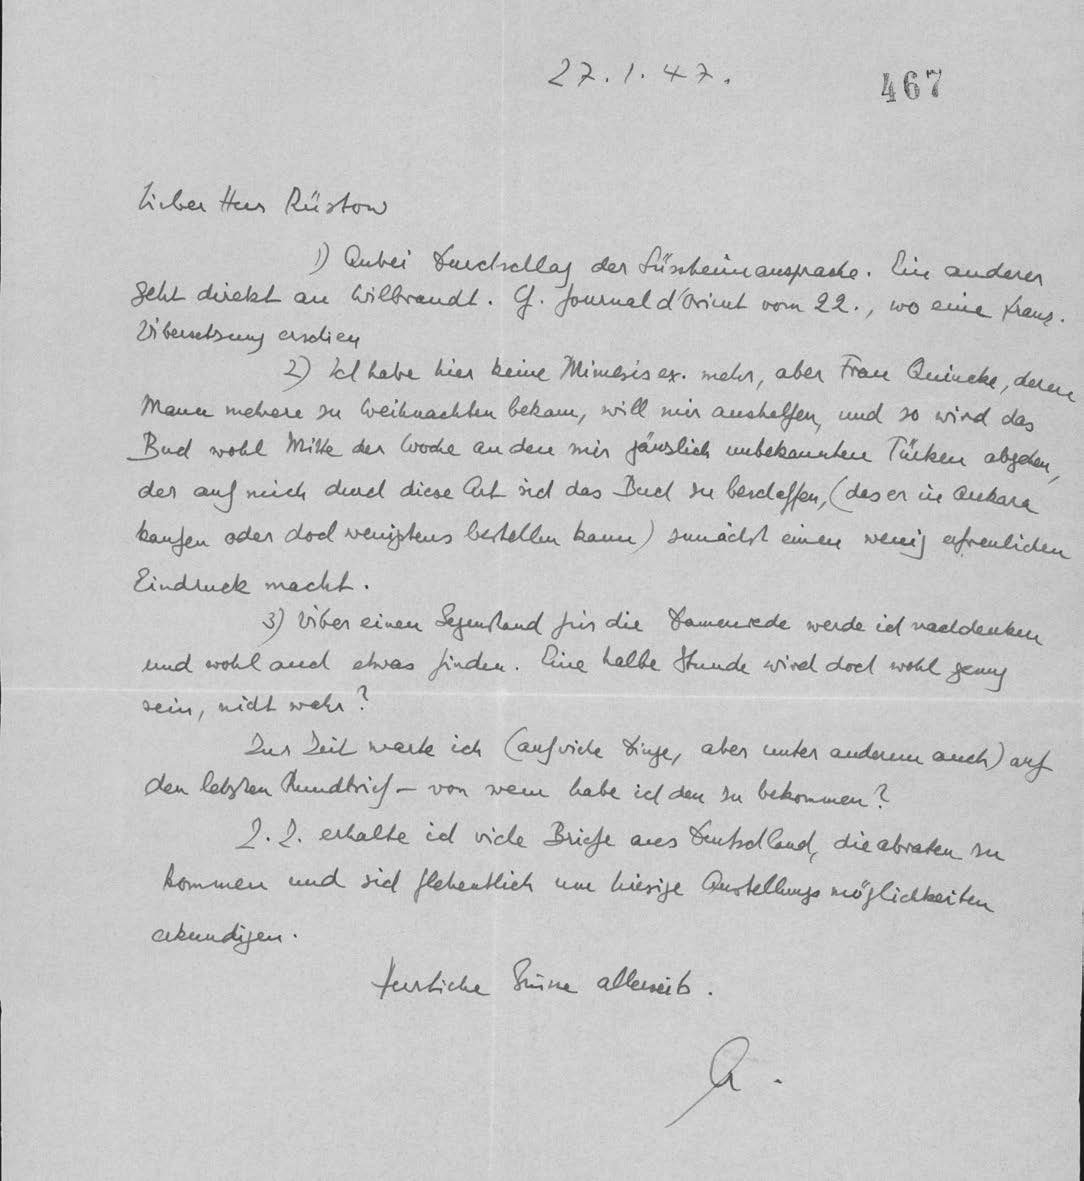 27.1.47.
467
Lieber Herr Rüstow
1) Anbei Durchschlag der Süssheimansprache. Ein anderer
geht direkt an Wilbrandt. Cf. Journal d'Orient vom 22., wo eine franz.
Übersetzung erschien
2) Ich habe hier keine Mimesisex. mehr, aber Frau Quincke, deren
Mann mehrere zu Weihnachten bekam, will mir aushelfen, und so wird das
Buch wohl Mitte der Woche an den mir gänzlich unbekannten Türken abgehen,
der auf mich durch diese Art sich das Buch zu beschaffen, (das er in Ankara
kaufen oder doch wenigstens bestellen kann) zunächst einen wenig erfreulichen
Eindruck macht.
3) Über einen Gegenstand für die Damenrede werde ich nachdenken
und wohl auch etwas finden. Eine halbe Stunde wird doch wohl genug
sein, nicht wahr?
Zur Zeit warte ich (auf viele Dinge, aber unter anderem auch) auf
den letzten Rundbrief – von wem habe ich den zu bekommen?
Z. Z. erhalte ich viele Briefe aus Deutschland, die abraten zu
kommen und sich flehentlich um hiesige Anstellungsmöglichkeiten
erkundigen.
Herzliche Grüsse allerseits.
A.